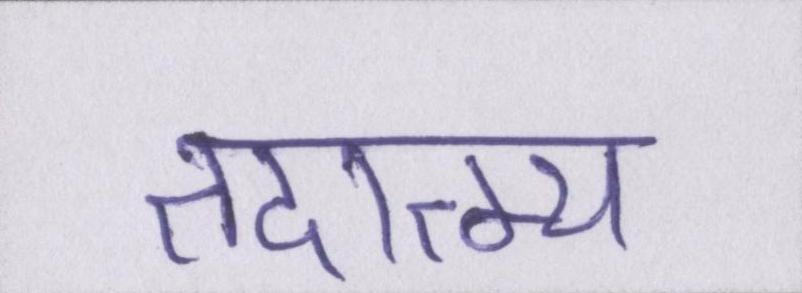 तदात्म्य